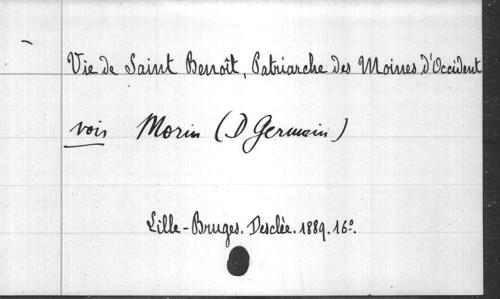 Vie de Saint Benoît, Patriarche des Moines d'Occident
voir Morin (D Germain)
Lille-Bruges. Desclée. 1889. 16°.